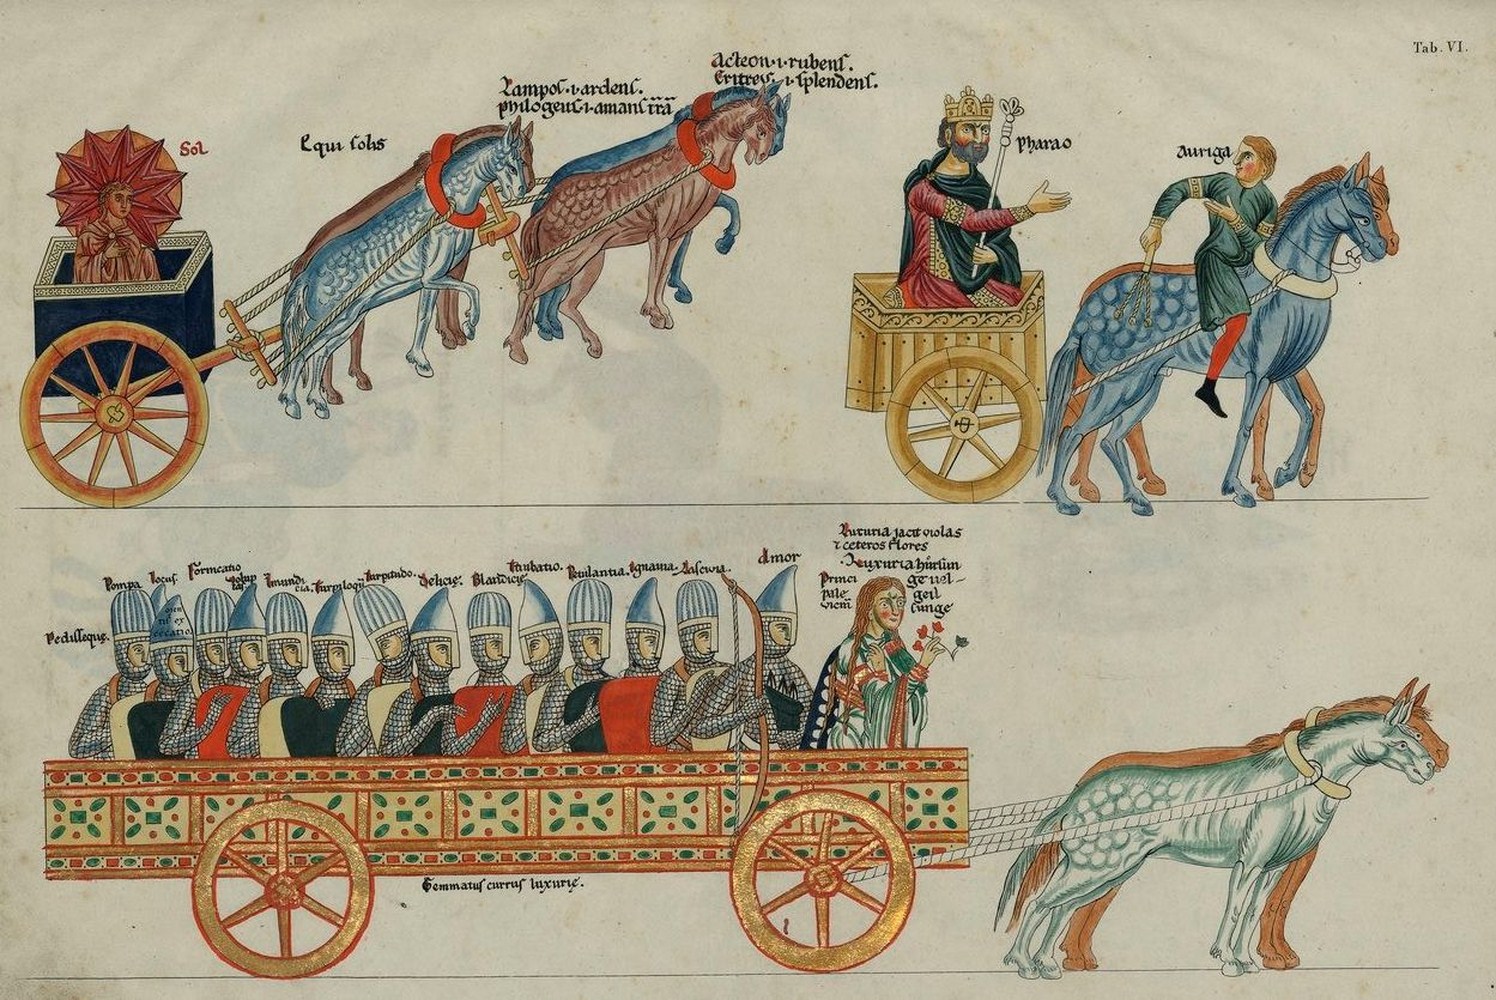 Tab. VI.
Sol
Equi solis
Lampos .i. ardens.
philogeus .i. amans trā
Acteon .i. rubens.
Eritreus .i. splendens.
pharao
Auriga
Pedisseque.
Pompa
Iocus.
Fornicatio
Volup
tas.
Inmundi
cia.
Turpiloqi
Turpitudo.
Delicie.
Blandicie
Titubatio.
Petulantia.
Ignauia.
Lasciuia.
Amor
Luxuria jacit violas
& ceteros flores
Luxuria
Princi
pale
viciū
Gemmatus currus luxurie.